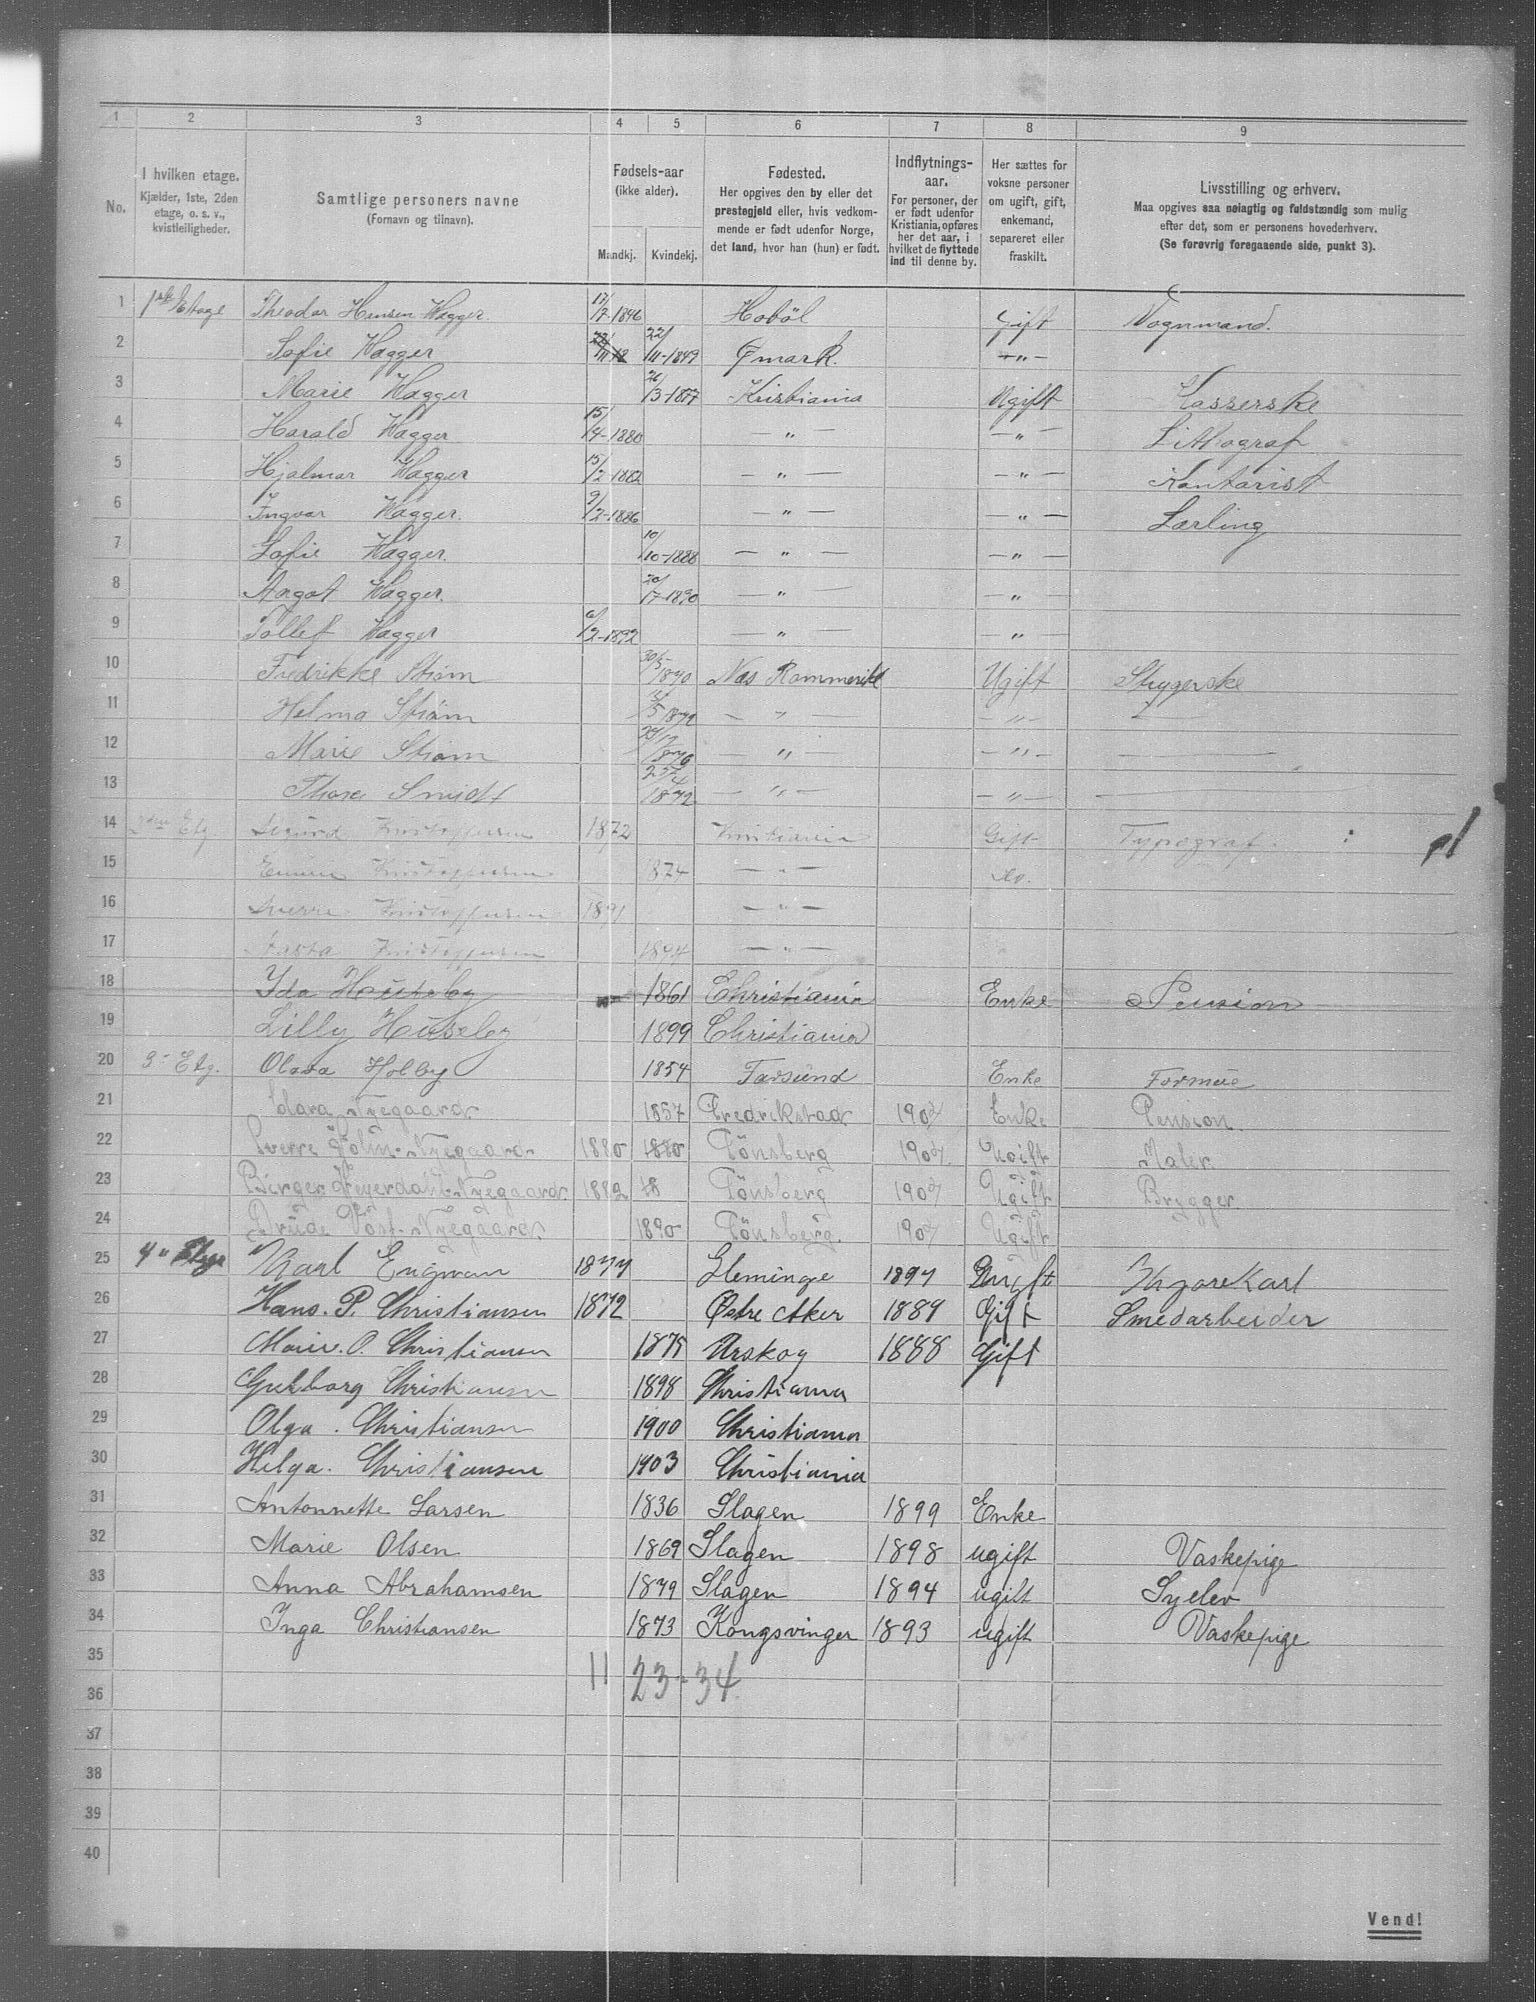 1 2 3 4 5 6 7 8 9
No.
I hvilken etage.
Kjælder, 1ste, 2den
etage, o. s. v.,
kvistleiligheder.
Samtlige personers navne
(Fornavn og tilnavn).
Fødsels-aar
(ikke alder).
Mandkj. Kvindekj.
Fødested.
Her opgives den by eller det
prestegjeld eller, hvis vedkom-
mende er født udenfor Norge,
det land, hvor han (hun) er født.
Indflytnings-
aar.
For personer, der
er født udenfor
Kristiania, opføres
her det aar, i
hvilket de flyttede
ind til denne by.
Her sættes for
voksne personer
om ugift, gift,
enkemand,
separeret eller
fraskilt.
Livsstilling og erhverv.
Maa opgives saa nøiagtig og fuldstændig som mulig
efter det, som er personens hovederhverv.
(Se forøvrig foregaaende side, punkt 3).
1 1ste Etage Theodor Hansen Wagger 17/7-1846 Hobøl Gift Vognmand.
2 Sofie Wagger 22/11-1849 Ømark. -"-
3 Marie Wagger 26/3-1877 Kristiania Ugift Kasserske
4 Harald Wagger 15/4-1880 -"- -"- Lithograf
5 Hjalmar Wagger 15/2-1882 -"- -"- Kontorist
6 Ingvar Wagger. 9/2-1886 -"- -"- Lærling
7 Sofie Wagger. 10/10-1888 -"- -"-
8 Aagot Wagger. 20/7-1890 -"- -"-
9 Tollef Wagger 6/2-1892 -"- -"-
10 Fredrikke Strøm 30/5 1870 Næs Rommerike Ugift Strygerske
11 Helma Strøm /5 1872 -"- -"- -
12 Marie Strøm 1876 -"- -"- -
13 Thora Smidt 25/4 1872 -"- -"- -
14 2den Etg. Sigurd Kristoffersen 1872 Kristiania Gift Typograf.
15 Emma Kristoffersen 1874 -"- do.
16 Sverre Kristoffersen 1891 -"-
17 Aasta Kristoffersen 1894 -"-
18 Ida Huseby 1861 Christiania Enke Pension
19 Lilly Huseby 1899 Christiania
20 3- Etg. Olava Holby 1854 Farsund Enke Formue
21 Clara Nyegaard 1857 Fredrikstad Enke Pension.
22 Sverre Holm-Nyegaard 1880 1880 Tönsberg Ugift Maler
23 Birger Heyerdahl-Nyegaard. 1882 18 Tönsberg Ugift Brygger.
24 Drude Vost-Nyegaard. 1890 Tönsberg. Ugift
25 4" Etage Karl Engman 1877 Gleminge 1897 Ugift Kjørekarl
26 Hans. P. Christiansen 1872 Østre Aker 1889 Gift Smedarbeider
27 Marie. O. Christiansen 1875 Urskog 1888 Gift
28 Gulborg Christiansen 1898 Christiania
29 Olga. Christiansen 1900 Christiania
30 Helga. Christiansen 1903 Christiania
31 Antonnette Larsen 1836 Slagen 1899 Enke
32 Marie Olsen 1869 Slagen 1898 ugift Vaskepige
33 Anna Abrahamsen 1879 Slagen 1894 ugift Syelev
34 Inga Christiansen 1873 Kongsvinger 1893 ugift Vaskepige
35 11 23-34
36
37
38
39
40
Vend!